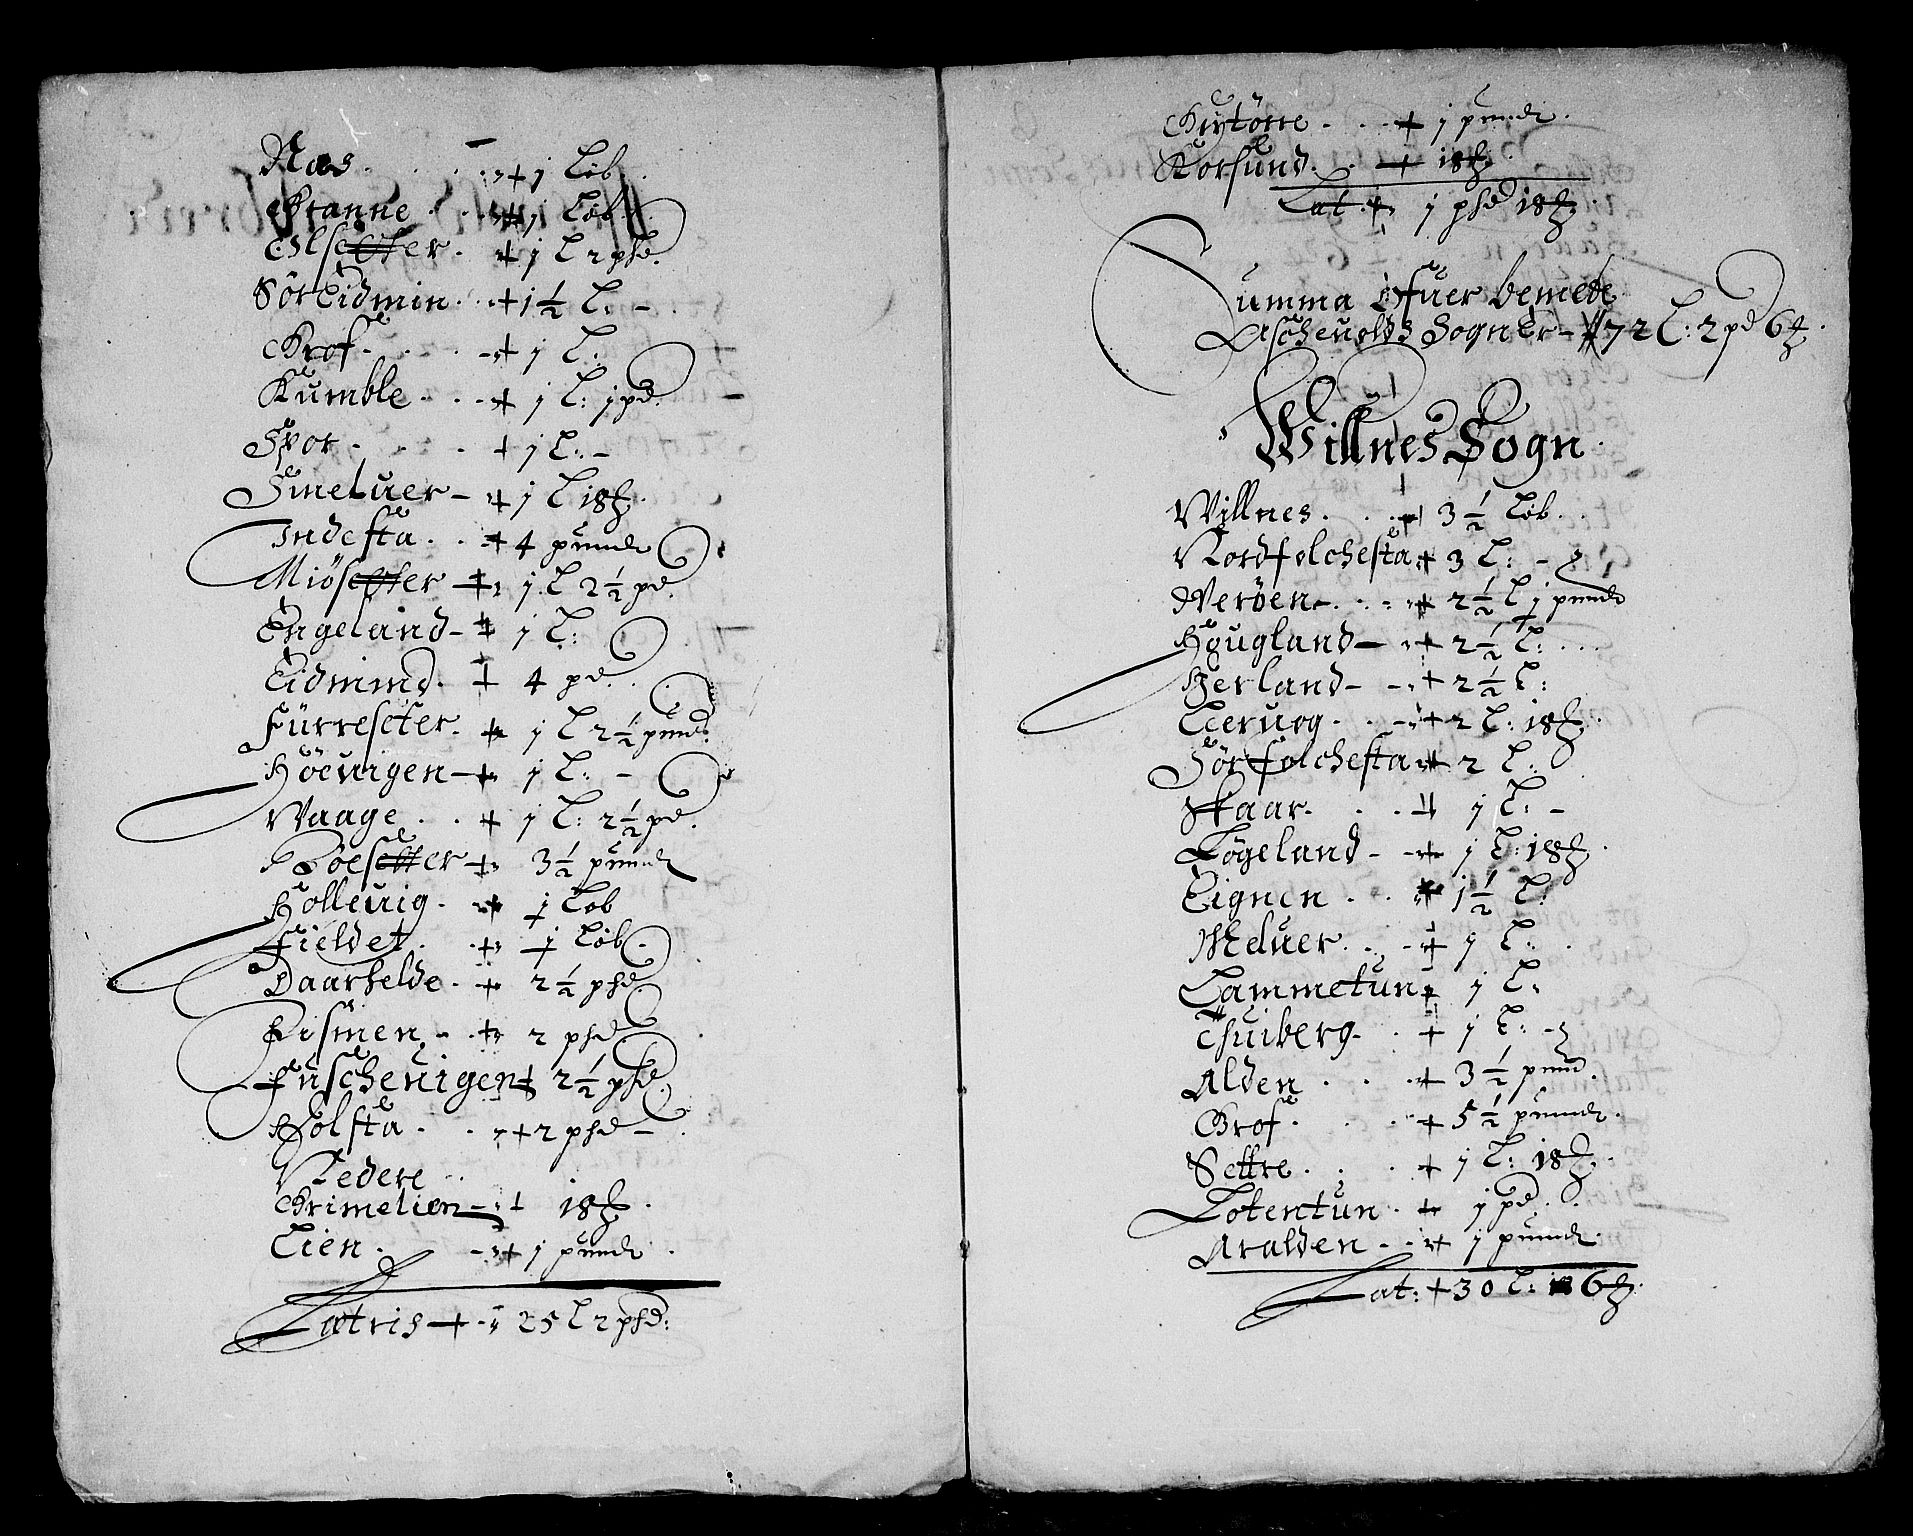 Naes . . . . 1 Løb
Granne . . . 1 Løb
Olsetter . 1 L 2 phd
Sörlidmin . . 1½ L: -
Grof . . . 1 L:
Kumble . . . 1 L: 1 pd
Spor . . . 1 L: -
Smeluer - 1 L 18 ℔
Indesta . . 4 pundt
Miösetter 1 L 2½ pd
Engeland - 1 L:
Eidmind . 4 pd
Fürresetter . 1 L 2½ pund
Höeuigen - 1 L: -
Waage . . 1 L: 2½ pd
Boesetter 3½ pundt
Holleuig . 1 Løb
Fieldet . . 1 Løb
Daarhelde . 2½ phd
Risnen - . 2 phd
Fuscheuigen 2½ phd
Holsta . . 2 phd -
Nedere
Grimelien - 18 ℔
Lien . - 1 pundt
Latris 25 L 2 phd:
Grytörre . . . 1 pundt
Korsund . . 18 ℔
Lat: 1 phd 18 ℔
Summa ofuer bemelte
Ascheuolds Sogner - 72 L: 2 pd 6 ℔
Willnes Sogn
Willnes . . . 3½ Løb
Nordfolchesta 3 L: -
Weröen . . . 2½ L 1 pundt
Hougland - 2½ L: . . .
Herland - - 2½ L:
Leeruog . . - 2 L: 18 ℔
Sörfolchesta 2 L:
Skaar . . . 1 L: -
Løgeland - - 1 L: 18 ℔
Eignen . . . 1½ L:
Meluer . . - 1 L: .
Lammetun 1 L:
Thuiberg . . 1 L: -
Alden . . . 3½ pund
Grof . . . 5½ pundt
Settre . . . 1 L: 18 ℔
Lotentun . 1 pd
Aralden - . 1 pundt
Lat: 30 L: 6 ℔